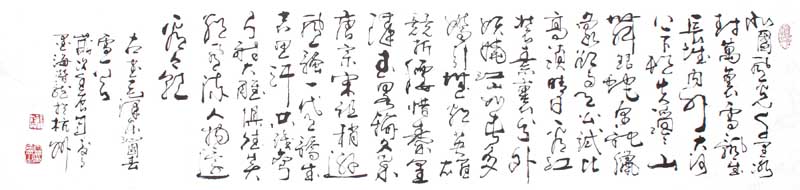 北國風光千里冰
封萬里雪飄望
長城內外大河
上下頓失滔滔山
舞銀蛇原馳臘
象欲與天公試比
高須晴日看紅
裝素裹分外
妖嬈江山如此多
嬌引無數英雄
競折腰惜秦皇
漢武略輸文采
唐宗宋祖稍遜
風騷一代天驕成
吉思汗只識彎
弓射大雕俱往矣
數風流人物還
看今朝
毛澤東沁園春
雪一首
歲次
於杭州